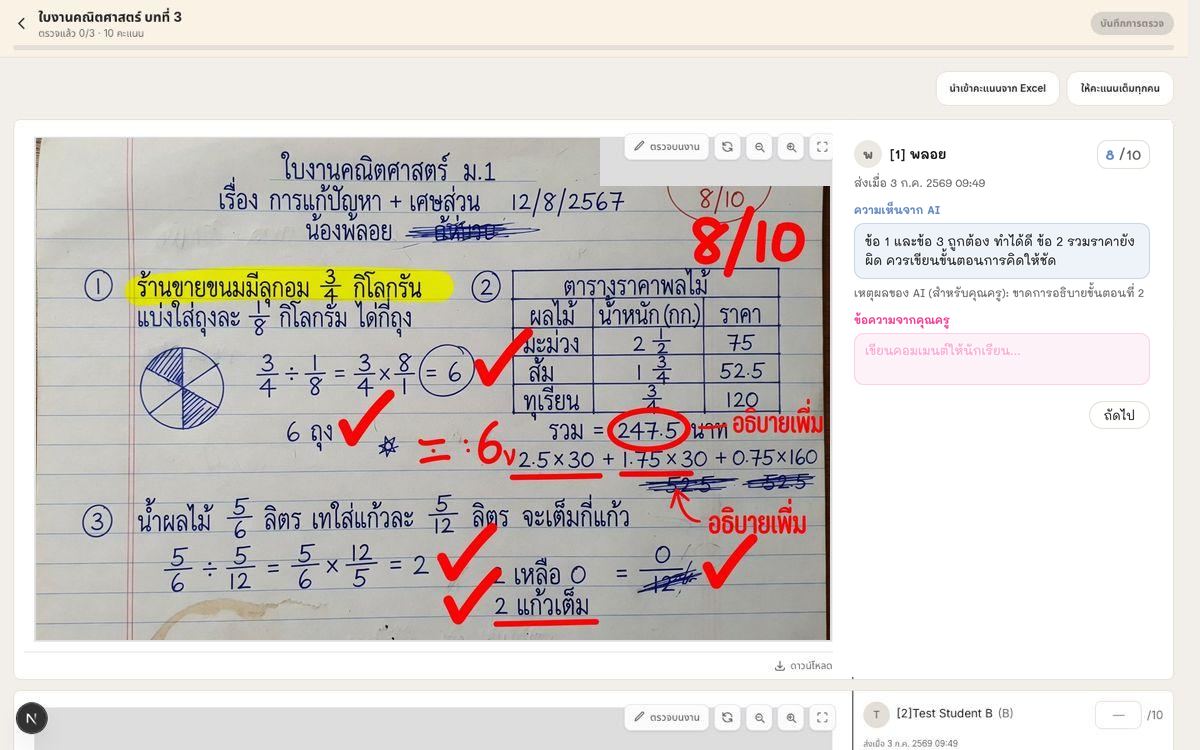 ใบงานคณิตศาสตร์ บทที่ 3
ตรวจแล้ว 0/3 · 10 คะแนน
บันทึกการตรวจ
นำเข้าคะแนนจาก Excel
ให้คะแนนเต็มทุกคน
ตรวจบนงาน
ใบงานคณิตศาสตร์ ม.1
เรื่อง การแก้ปัญหา + เศษส่วน 12/8/2567
น้องพลอย
8/10
8/10
① ร้านขายขนมมีลูกอม 3/4 กิโลกรัม
แบ่งใส่ถุงละ 1/8 กิโลกรัม ได้กี่ถุง
3/4 ÷ 1/8 = 3/4 × 8/1 = 6
6 ถุง
= : 6
② ตารางราคาผลไม้
ผลไม้ น้ำหนัก (กก.) ราคา
มะม่วง 2 1/2 75
ส้ม 1 3/4 52.5
ทุเรียน 3/4 120
รวม = 247.5 บาท อธิบายเพิ่ม
2.5×30 + 1.75×30 + 0.75×160
52.5 52.5
อธิบายเพิ่ม
③ น้ำผลไม้ 5/6 ลิตร เทใส่แก้วละ 5/12 ลิตร จะเต็มกี่แก้ว
5/6 ÷ 5/12 = 5/6 × 12/5 = 2
เหลือ 0 = 0/12
2 แก้วเต็ม
ดาวน์โหลด
พ [1] พลอย 8 /10
ส่งเมื่อ 3 ก.ค. 2569 09:49
ความเห็นจาก AI
ข้อ 1 และข้อ 3 ถูกต้อง ทำได้ดี ข้อ 2 รวมราคายัง
ผิด ควรเขียนขั้นตอนการคิดให้ชัด
เหตุผลของ AI (สำหรับคุณครู): ขาดการอธิบายขั้นตอนที่ 2
ข้อความจากคุณครู
เขียนคอมเมนต์ให้นักเรียน...
ถัดไป
N
ตรวจบนงาน
T [2]Test Student B (B) — /10
ส่งเมื่อ 3 ก.ค. 2569 09:49